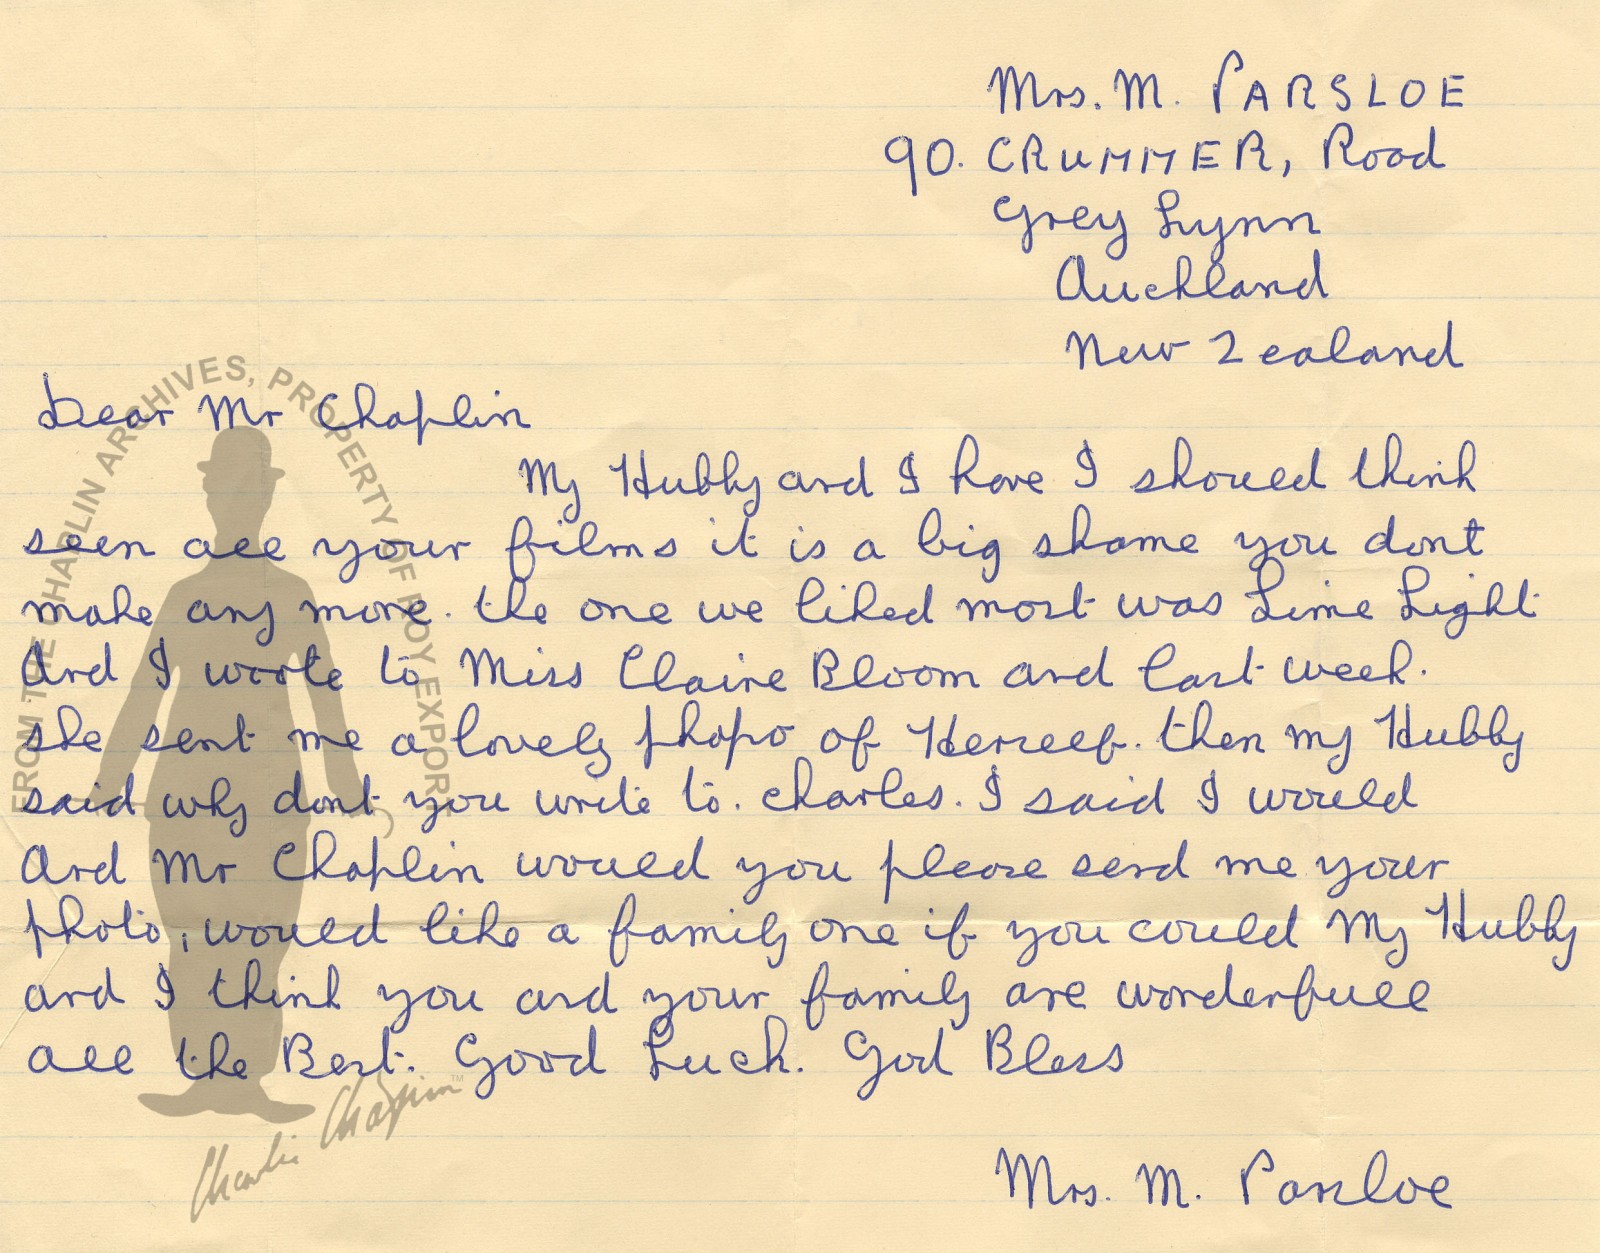 Mrs. M. PARSLOE
90. CRUMMER, Road
Grey Lynn
Auckland
New Zealand
Dear Mr Chaplin
My Hubby and I have I should think
seen all your films it is a big shame you dont
make any more. the one we liked most was Lime Light
And I wrote to Miss Claire Bloom and last week.
she sent me a lovely phopo of Herself. then my Hubby
said why dont you write to. Charles. I said I would
And Mr Chaplin would you please send me your
photo, would like a family one if you could My Hubby
and I think you and your family are wonderfull
all the Best. Good Luck. God Bless
Mrs. M. Parsloe
FROM THE CHAPLIN ARCHIVES, PROPERTY OF ROY EXPORT
Charlie Chaplin™